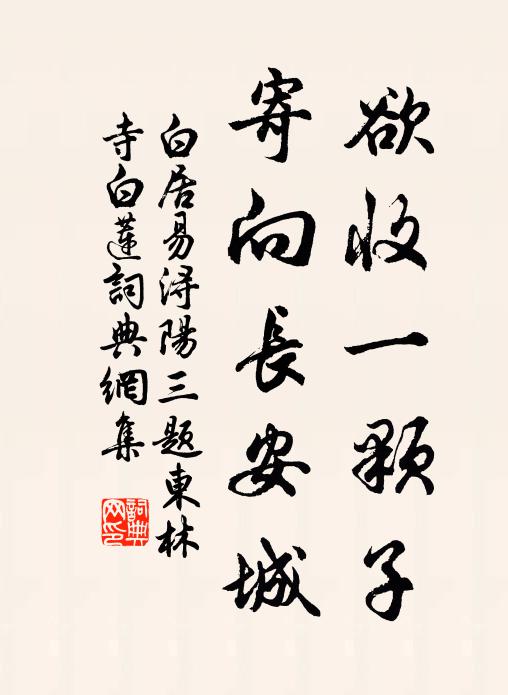 欲收一顆子
寄向長安城
白居易潯陽三題東林
寺白蓮詞典網集
詞典
网印